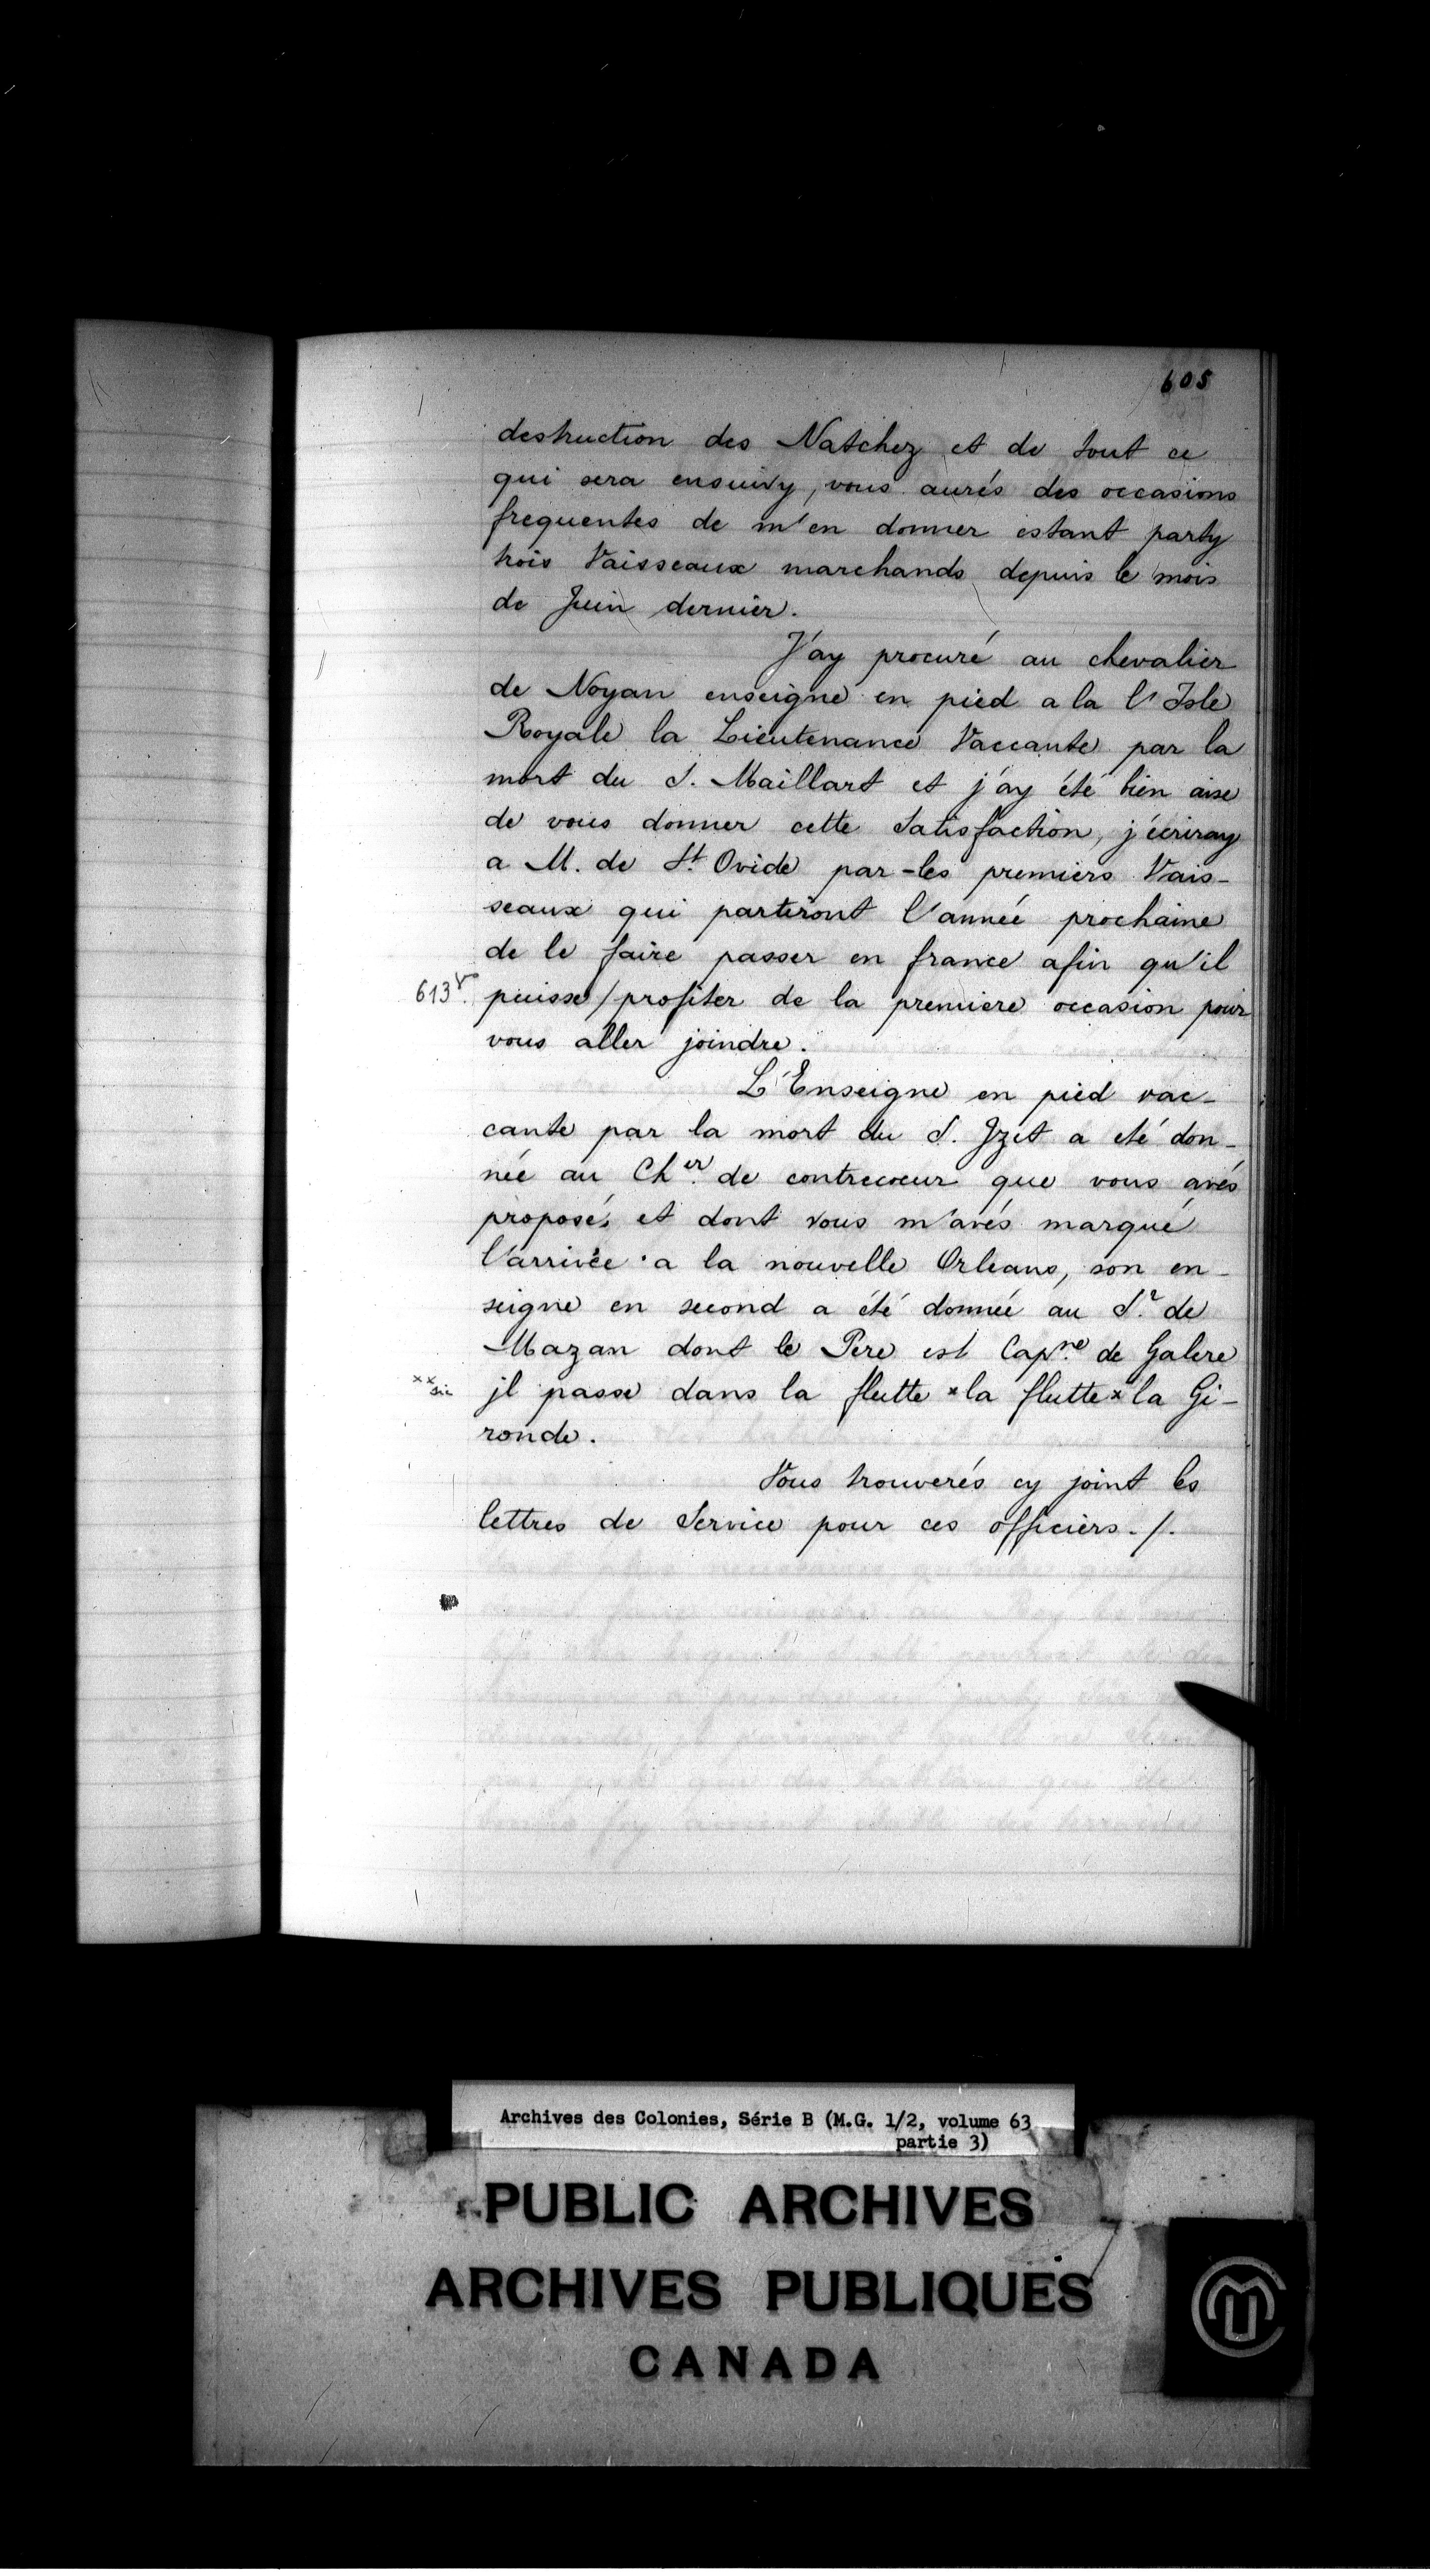 605
destruction des Natchez et de tout ce
qui sera ensuivy, vous aurés des occasions
frequentes de m'en donner estant party
trois Vaisseaux marchands depuis le mois
de Juin dernier.
J'ay procuré au chevalier
de Noyan enseigne en pied a la l'Isle
Royale la Lieutenance Vaccante par la
mort du S. Maillart et j'ay été bien aise
de vous donner cette Satisfaction, j'écriray
a M. de St. Ovide par-les premiers Vais-
seaux qui partiront l'année prochaine
de le faire passer en france afin qu'il
613 vo. puisse/profiter de la premiere occasion pour
vous aller joindre.
L'Enseigne en pied vac-
cante par la mort du S. Izet a eté don-
née au Cher. de contrecoeur que vous avés
proposé, et dont vous m'avés marqué
l'arrivée a la nouvelle Orleans, son en-
seigne en second a été donnée au Sr. de
Mazan dont le Pere est Capne. de Galere
xx sic jl passe dans la flutte x la flutte x la Gi-
ronde.
Vous trouverés cy joint les
lettres de Service pour ces officiers./.
Archives des Colonies, Série B (M.G. 1/2, volume 63
partie 3)
PUBLIC ARCHIVES
ARCHIVES PUBLIQUES
CANADA